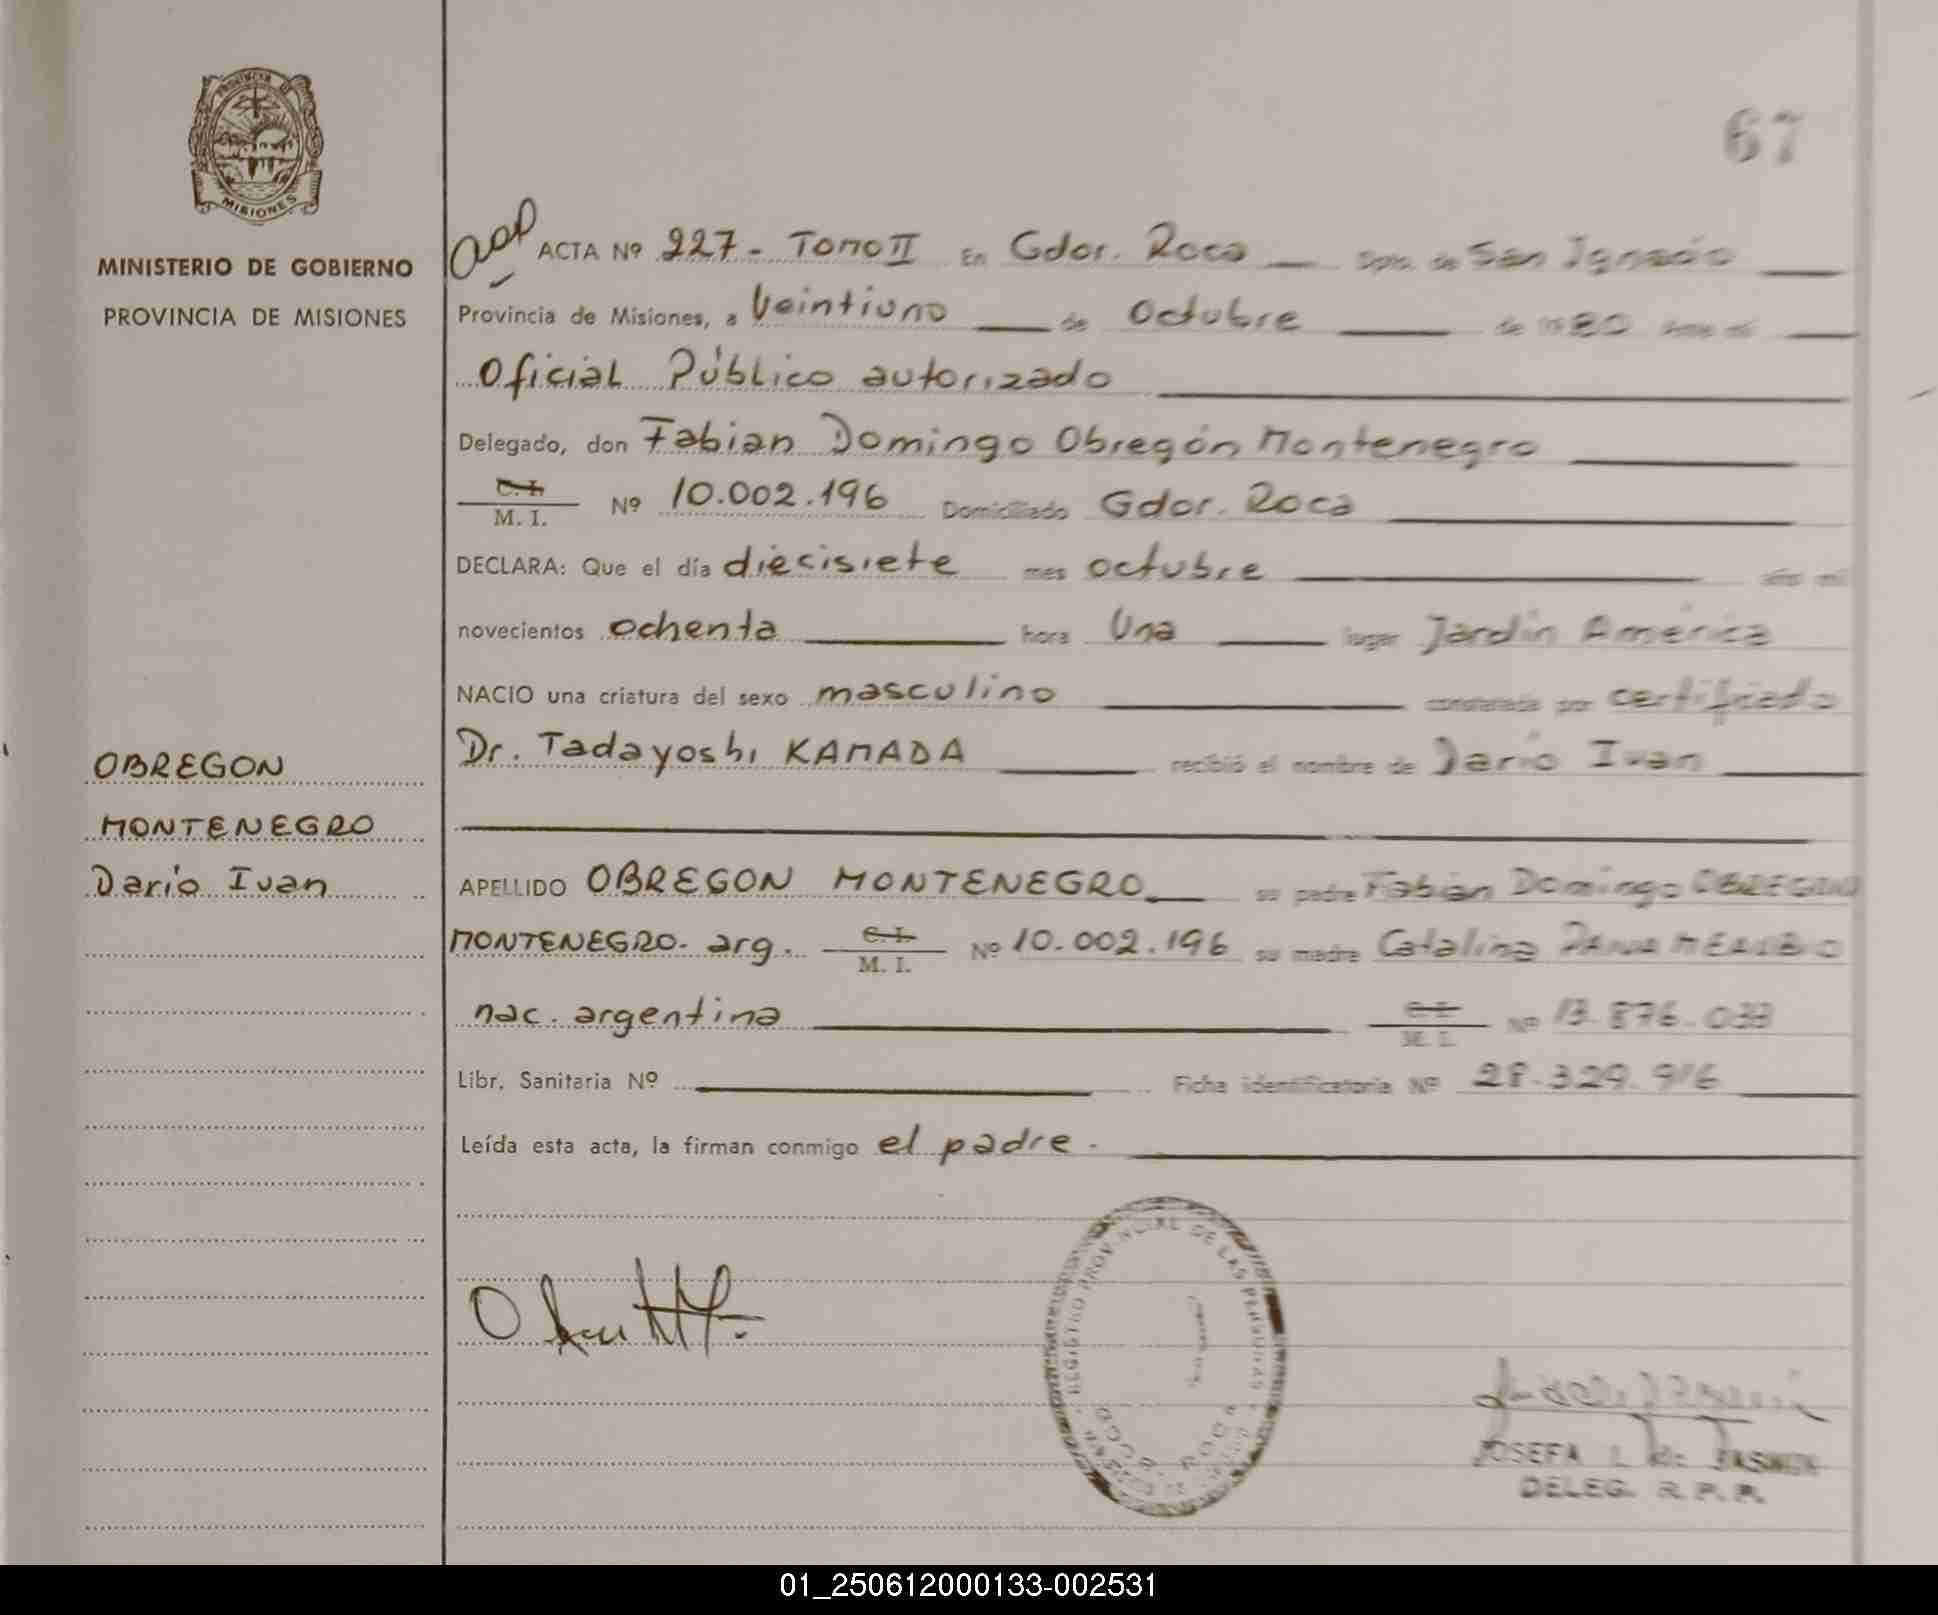 PROVINCIA DE
MISIONES
MINISTERIO DE GOBIERNO
PROVINCIA DE MISIONES
67
ACTA Nº 227 - Tomo II En Gdor. Roca Dpto. de San Ignacio
Provincia de Misiones, a Veintiuno de Octubre de 1980 ante mí
Oficial Público autorizado
Delegado, don Fabian Domingo Obregón Montenegro
C. I.
M. I. Nº 10.002.196 Domiciliado Gdor. Roca
DECLARA: Que el día diecisiete mes octubre año mil
novecientos ochenta hora Una lugar Jardín América
NACIO una criatura del sexo masculino constatada por certificado
Dr. Tadayoshi KAMADA recibió el nombre de Darío Ivan
OBREGON
MONTENEGRO
Darío Ivan
APELLIDO OBREGON MONTENEGRO su padre Fabian Domingo OBREGON
MONTENEGRO. arg. C. I.
M. I. Nº 10.002.196 su madre Catalina
nac. argentina C. I.
M. I. Nº 13.876.033
Libr. Sanitaria Nº Ficha identificatoria Nº 28.329.916
Leída esta acta, la firman conmigo el padre.
REGISTRO PROVINCIAL DE LAS PERSONAS
ROCA
JOSEFA L. de
DELEG. R. P. P.
01_250612000133-002531